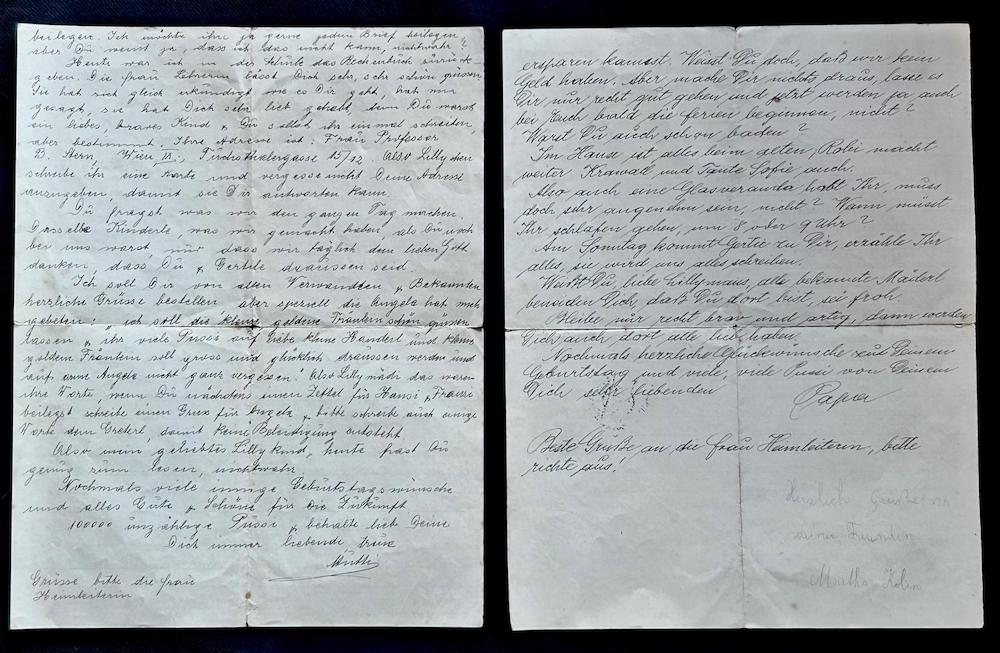 beilegen. Ich möchte ihr ja gerne jedem Brief beilegen,
aber Du weisst ja, dass ich das nicht kann, nichtwahr?
Heute war ich in der Schule das Rechenbuch zurück-
geben. Die Frau Lehrerin lässt Dich sehr, sehr schön grüssen,
Sie hat sich gleich erkundigt wie es Dir geht, hat mir
gesagt, sie hat Dich sehr lieb gehabt, denn Du warst
ein liebes, braves Kind & Du sollst ihr einmal schreiben,
aber bestimmt. Ihre Adresse ist: Frau Professor
B. Stern, Wien IX., 15/12. Also Lilly
schreibe ihr eine Karte und vergesse nicht Deine Adresse
anzugeben, damit sie Dir antworten kann.
Du fragst was wir den ganzen Tag machen.
Dasselbe Kinderle, was wir gemacht haben, als Du noch
bei uns warst, nur dass wir täglich dem lieben Gott
danken, dass Du & Gertile draussen seid.
Ich soll Dir von allen Verwandten & Bekannten
herzliche Grüsse bestellen aber speziell die Angela hat mich
gebeten: "ich soll die kleine goldene Fräulein schön grüssen
lassen & ihr viele Pussi auf liebe kleine Handerl und kleine
goldene Fräulein soll gross und glücklich draussen werden und
auf arme Angela nicht ganz vergessen." Also Lillymädi das waren
ihre Worte, wenn Du nächstens einen Zettel für Hansi & Franzi
beilegst schreibe einen Gruss für Angela & bitte schreibe auch einige
Worte dem Greterl, damit keine Beleidigung entsteht.
Also mein geliebtes Lillykind, heute hast Du
genug zum lesen, nichtwahr.
Nochmals viele innige Geburtstagswünsche
und alles Gute & Schöne für die Zukunft
100000 unzählige Pussi & behalte lieb Deine
Dich immer liebende treue
Mutti
Grüsse bitte die Frau
Heimleiterin
ersparen kannst. Weisst Du doch, daß wir kein
Geld haben. Aber mache Dir nichts draus, lasse es
Dir nur recht gut gehen und jetzt werden ja auch
bei Euch bald die Ferien beginnen, nicht?
Warst Du auch schon baden?
Im Hause ist alles beim alten, Robi macht
weiter Krawall und Tante Sofie auch.
Also auch eine Glasveranda habt Ihr, muss
doch sehr angenehm sein, nicht? Wann müsst
Ihr schlafen gehen, um 8 oder 9 Uhr?
Am Sonntag kommt Gertie zu Dir, erzähle Ihr
alles, sie wird uns alles schreiben.
Weißt Du, liebe Lillymaus, alle bekannte Mäderl
beneiden Dich, daß Du dort bist, sei froh.
Bleibe nur recht brav und artig, dann werden
Dich auch dort alle lieb haben.
Nochmals herzliche Glückwünsche zu Deinem
Geburtstag und viele, viele Pussi von Deinem
Dich sehr liebenden
Papa
Beste Grüße an die Frau Heimleiterin, bitte
richte aus!
Herzlich Grüße von
deiner Freundin
Martha Kolin